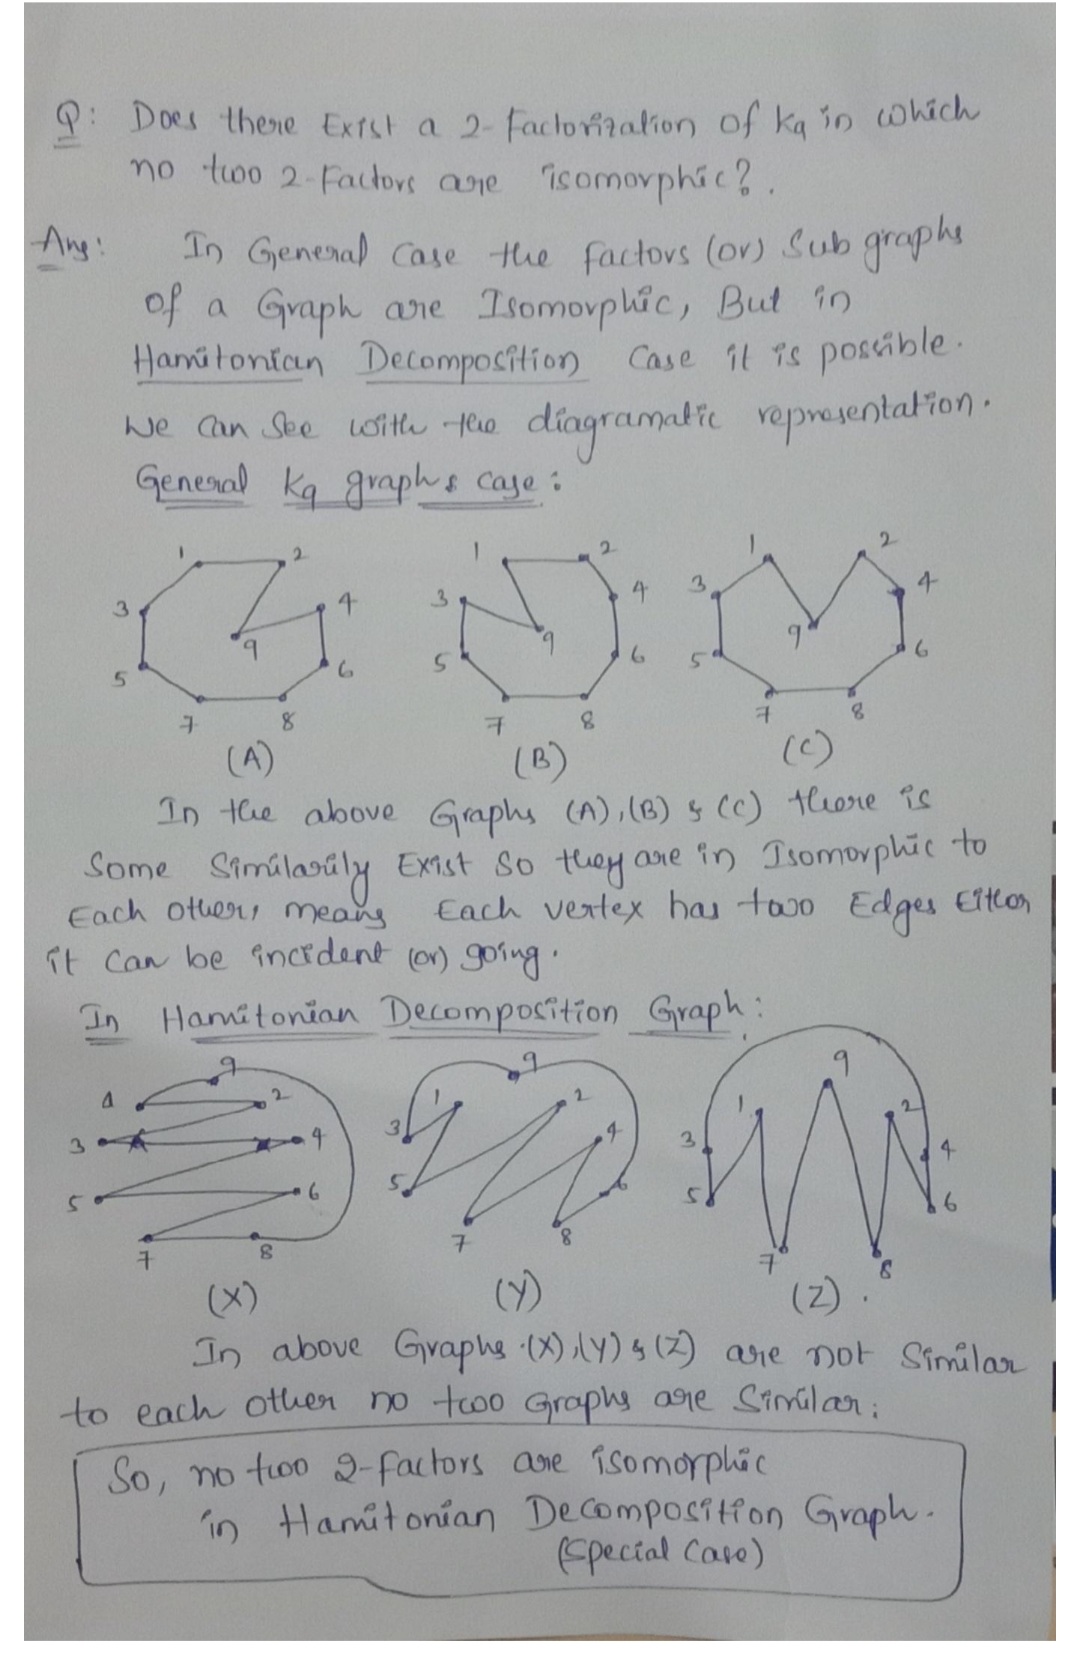 Q: Does there Exist a 2-Factorization of K9 in which
no two 2-Factors are isomorphic?.
Ans: In General case the factors (or) Sub graphs
of a Graph are Isomorphic, But in
Hamitonian Decomposition Case it is possible.
We can See with the diagramatic representation.
General K9 graphs case:
1 2 3 4 5 6 7 8 9
1 2 3 4 5 6 7 8 9
1 2 3 4 5 6 7 8 9
(A) (B) (C)
In the above Graphs (A),(B) & (C) there is
Some Similarily Exist so they are in Isomorphic to
Each other, means Each vertex has two Edges Either
it can be incident (or) going.
In Hamitonian Decomposition Graph:
1 2 3 4 5 6 7 8 9
1 2 3 4 5 6 7 8 9
1 2 3 4 5 6 7 8 9
(X) (Y) (Z).
In above Graphs (X),(Y) & (Z) are not Similar
to each other no two Graphs are Similar;
So, no two 2-factors are isomorphic
in Hamitonian Decomposition Graph.
(Special Case)